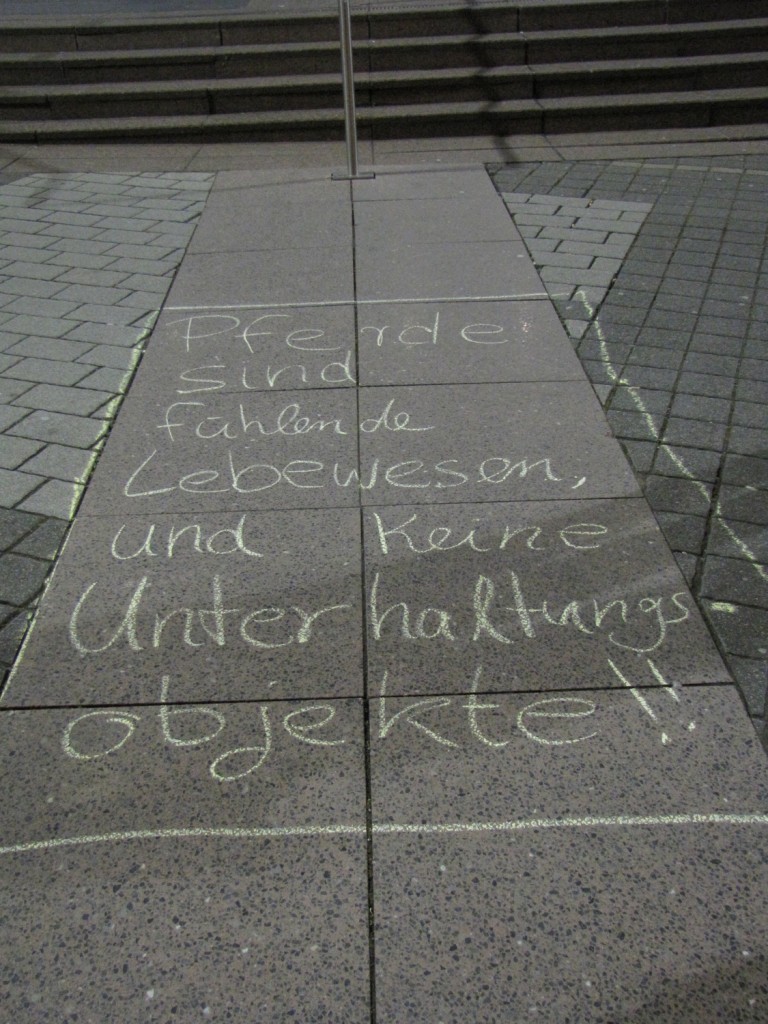 Pferde
sind
fühlende
Lebewesen,
und keine
Unterhaltungs
objekte!!